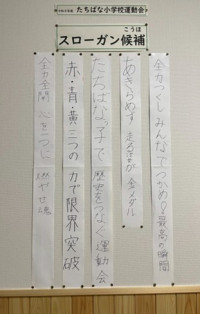 たちばな小学校運動会
こうほ
スローガン候補
全力つくし みんなでつかめ!最高の瞬間
あきらめず 走るほうが金メダル
たちばなっ子で 歴史をつなぐ運動会
赤・青・黄三つの力で限界突破
全力全開 心を一つに 燃やせ魂